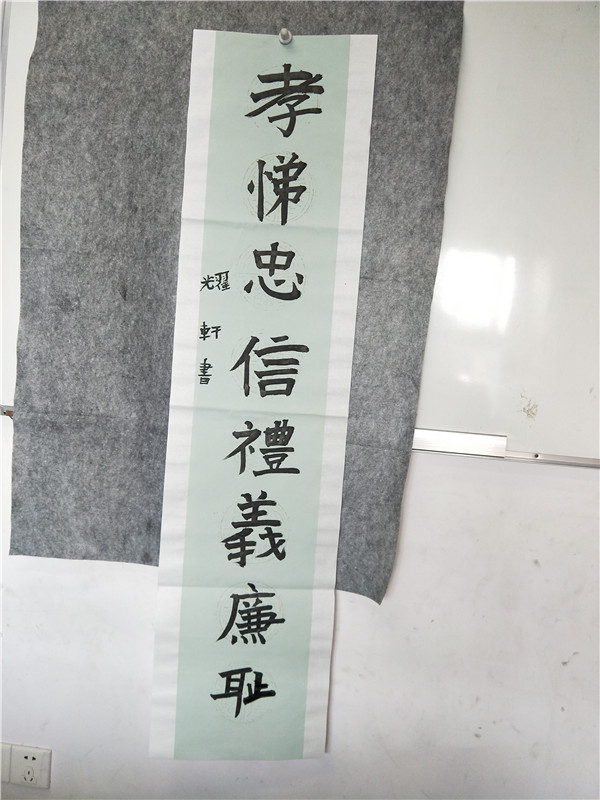 孝悌忠信禮義廉耻
耀軒書